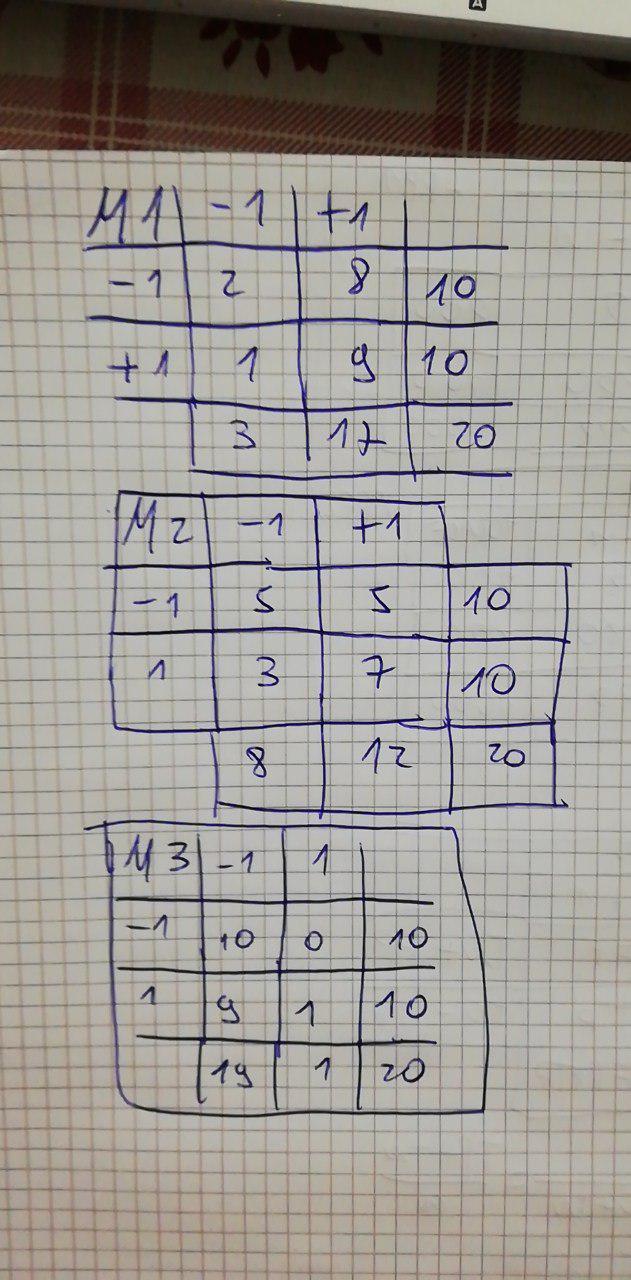 M1 -1 +1
-1 2 8 10
+1 1 9 10
3 17 20
M2 -1 +1
-1 5 5 10
1 3 7 10
8 12 20
M3 -1 1
-1 10 0 10
1 9 1 10
19 1 20